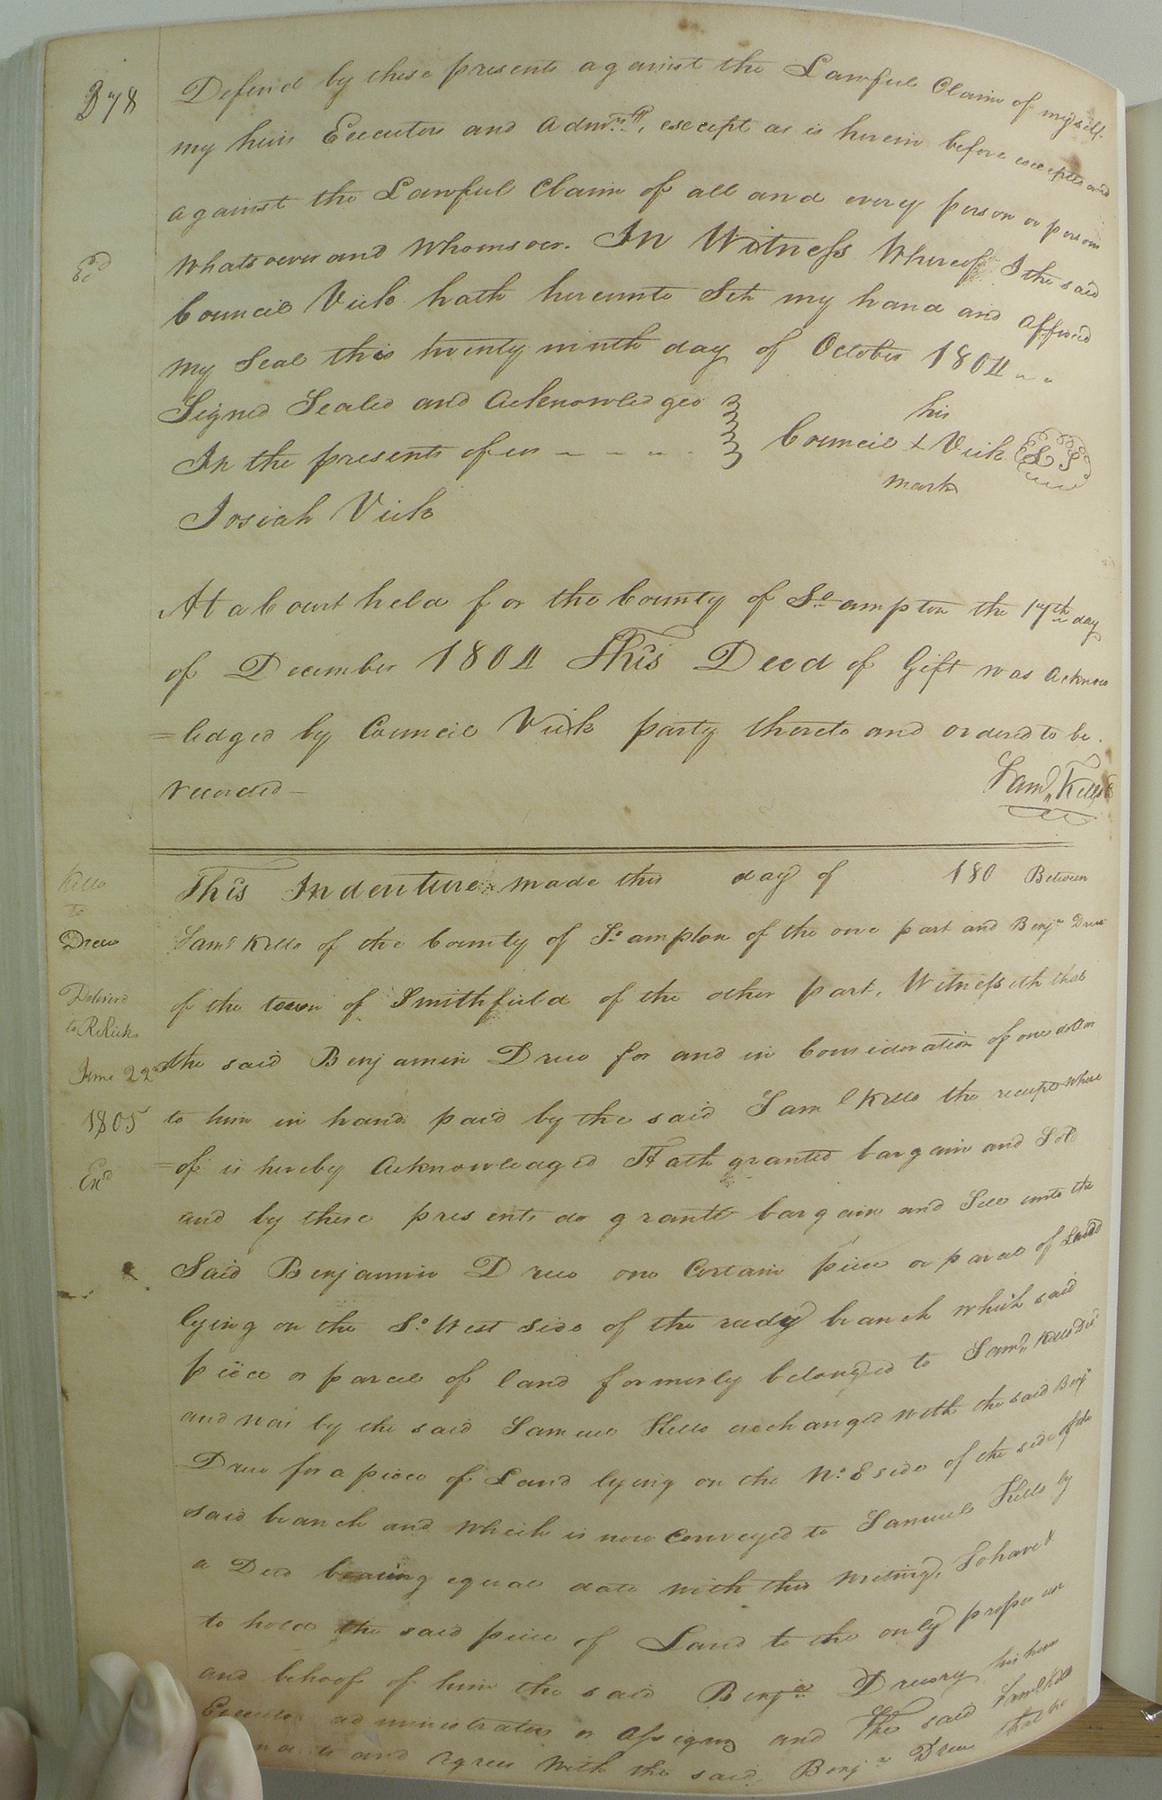 278
Defend by these presents against the Lawful Claim of myself
my heirs Executors and Admrs, except as is herein before excepted and
against the Lawful Claim of all and every person or persons
Whatsoever and Whomsoever. In Witness Whereof I the said
Exd
Council Vick hath hereunto Set my hand and affixed
my Seal this twenty ninth day of October 1804
Signed Sealed and Acknowledged
In the presents of us
his
Council + Vick LS
mark
Josiah Vick
At a Court held for the County of So.ampton the 17th day
of December 1804 This Deed of Gift was Acknow
=ledged by Council Vick party thereto and ordered to be
recorded
Saml Kello
Kello
to
Drew
Delivered
to R. Ricks
June 22d
1805
Exd
This Indenture made this day of 180 Between
Saml Kello of the County of So.ampton of the one part and Benja Drew
of the town of Smithfield of the other part, Witnesseth that
the said Benjamin Drew for and in Consideration of one dollar
to him in hand paid by the said Saml Kello the receipt where
=of is hereby Acknowledged Hath granted bargain and Sold
and by these presents do grant bargain and Sell unto the
Said Benjamin Drew one Certain piece or parcel of Land
lying on the So. West Side of the reedy branch which said
piece or parcel of land formerly belonged to Saml Kello Decd
and now by the said Samuel Kello exchanged with the said Benja
Drew for a piece of Land lying on the No. E side of the side of the
said branch and which is now Conveyed to Samuel Kello by
a Deed bearing equal date with this writing, To have &
to hold the said piece of Land to the only proper use
and behoof of him the said Benja Drewry his heirs
Executors administrators or Assigns and the said Saml Kello
and agrees with the said Benja Drew that he